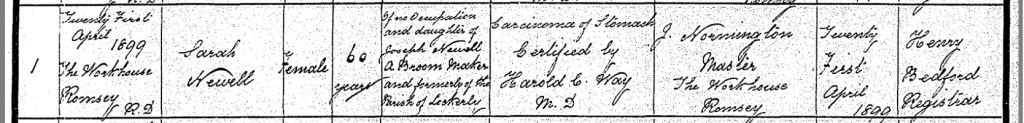 1
Twenty First
April
1899
The Workhouse
Romsey
R.D
Sarah
Newell
Female
60
years
Of no Occupation
and daughter of
Joseph Newell
A Broom Maker
and formerly of the
Parish of Lockerly
Carcinoma of Stomach
Certified by
Harold C. Way
M.D
J. Normington
Master
The Workhouse
Romsey
Twenty
First
April
1899
Henry
Bedford
Registrar